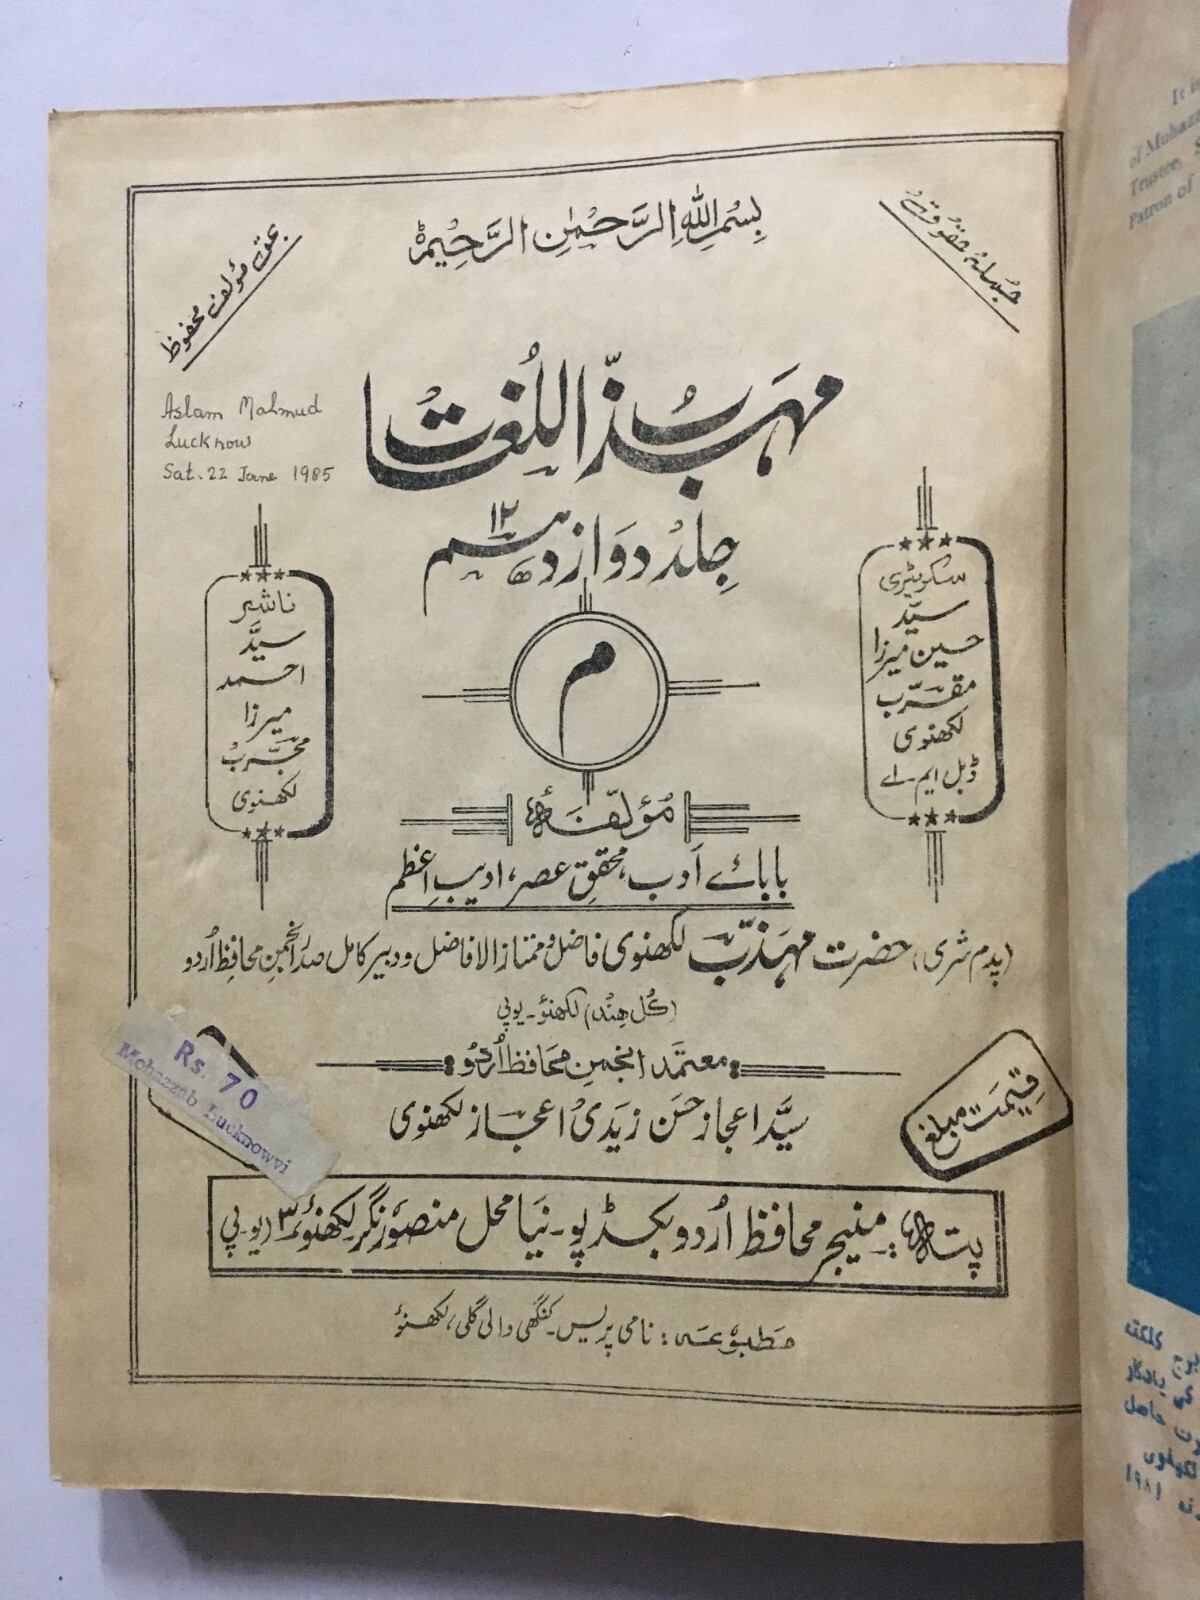 بِسْمِ اللهِ الرَّحْمٰنِ الرَّحِيْمِ
جملہ حقوق
بحق مؤلف محفوظ
مہذّب اللغات
Aslam Mahmud
Lucknow
Sat. 22 June 1985
جلد دوازدہم ۱۲
م
سکریٹری
سیّد
حسین میرزا
مقرّب
لکھنوی
ڈبل ایم۔اے
ناشر
سیّد
احمد
میرزا
مجرّب
لکھنوی
مؤلفہ
بابائے ادب، محقق عصر، ادیبِ اعظم
(پدم شری) حضرت مہذّب لکھنوی فاضل و ممتاز الافاضل و دبیر کامل صدر انجمن محافظ اردو
(کل ہند) لکھنؤ۔ یوپی
معتمد انجمن محافظ اُردو
سیّد اعجاز حسن زیدی اعجاز لکھنوی
قیمت مبلغ
Rs. 70
Mohazzab Lucknowvi
پتہ:۔ منیجر محافظ اُردو بکڈپو۔ نیا محل منصور نگر لکھنؤ ۳ (یو۔پی
مطبوعہ: نامی پریس۔ کنگھی والی گلی، لکھنؤ
It is
of Muhazz
Trustee, S
Patron of
کلکتہ
کی یادگار
حاصل
لکھنوی
۱۹۸۱